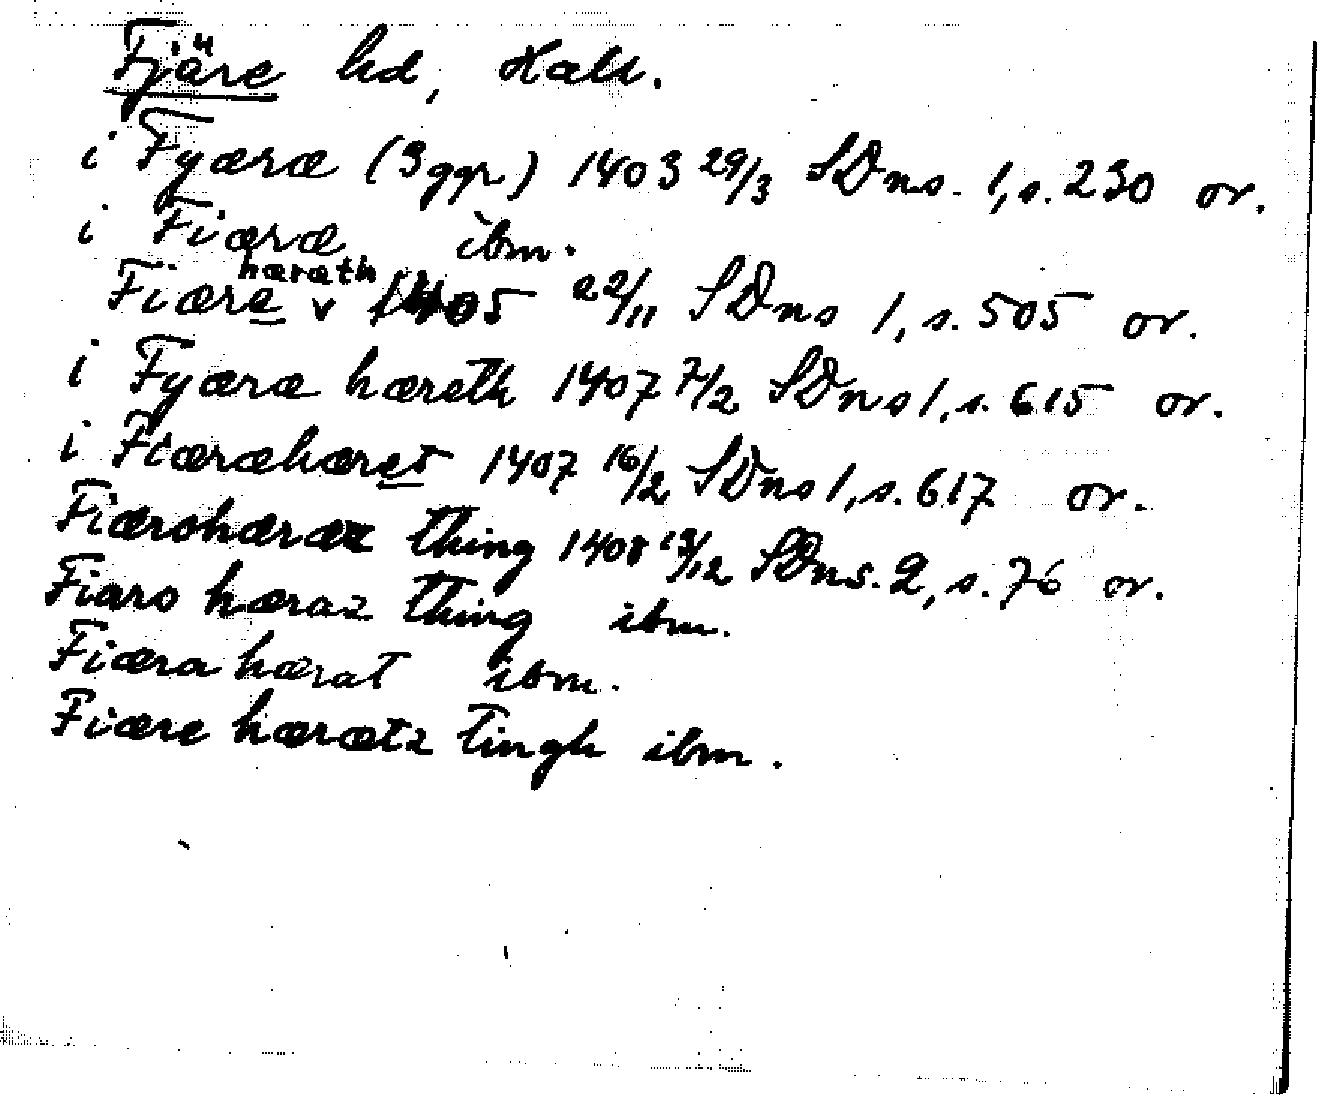 Fjäre hd, Hall.
i Fyæræ (3 ggr) 1403 29/3 SDns. 1, s. 230 or.
i Fiæræ ibm.
Fiære hæræth 1405 22/11 SDns 1, s. 505 or.
i Fyæræ hæreth 1407 7/2 SDns 1, s. 615 or.
i Fiæræhæret 1407 16/2 SDns 1, s. 617 or.
Fiærohæræz thing 1408 13/12 SDns. 2, s. 76 or.
Fiaro hæraz thing ibm.
Fiæra hærat ibm.
Fiære hærætz tingh ibm.